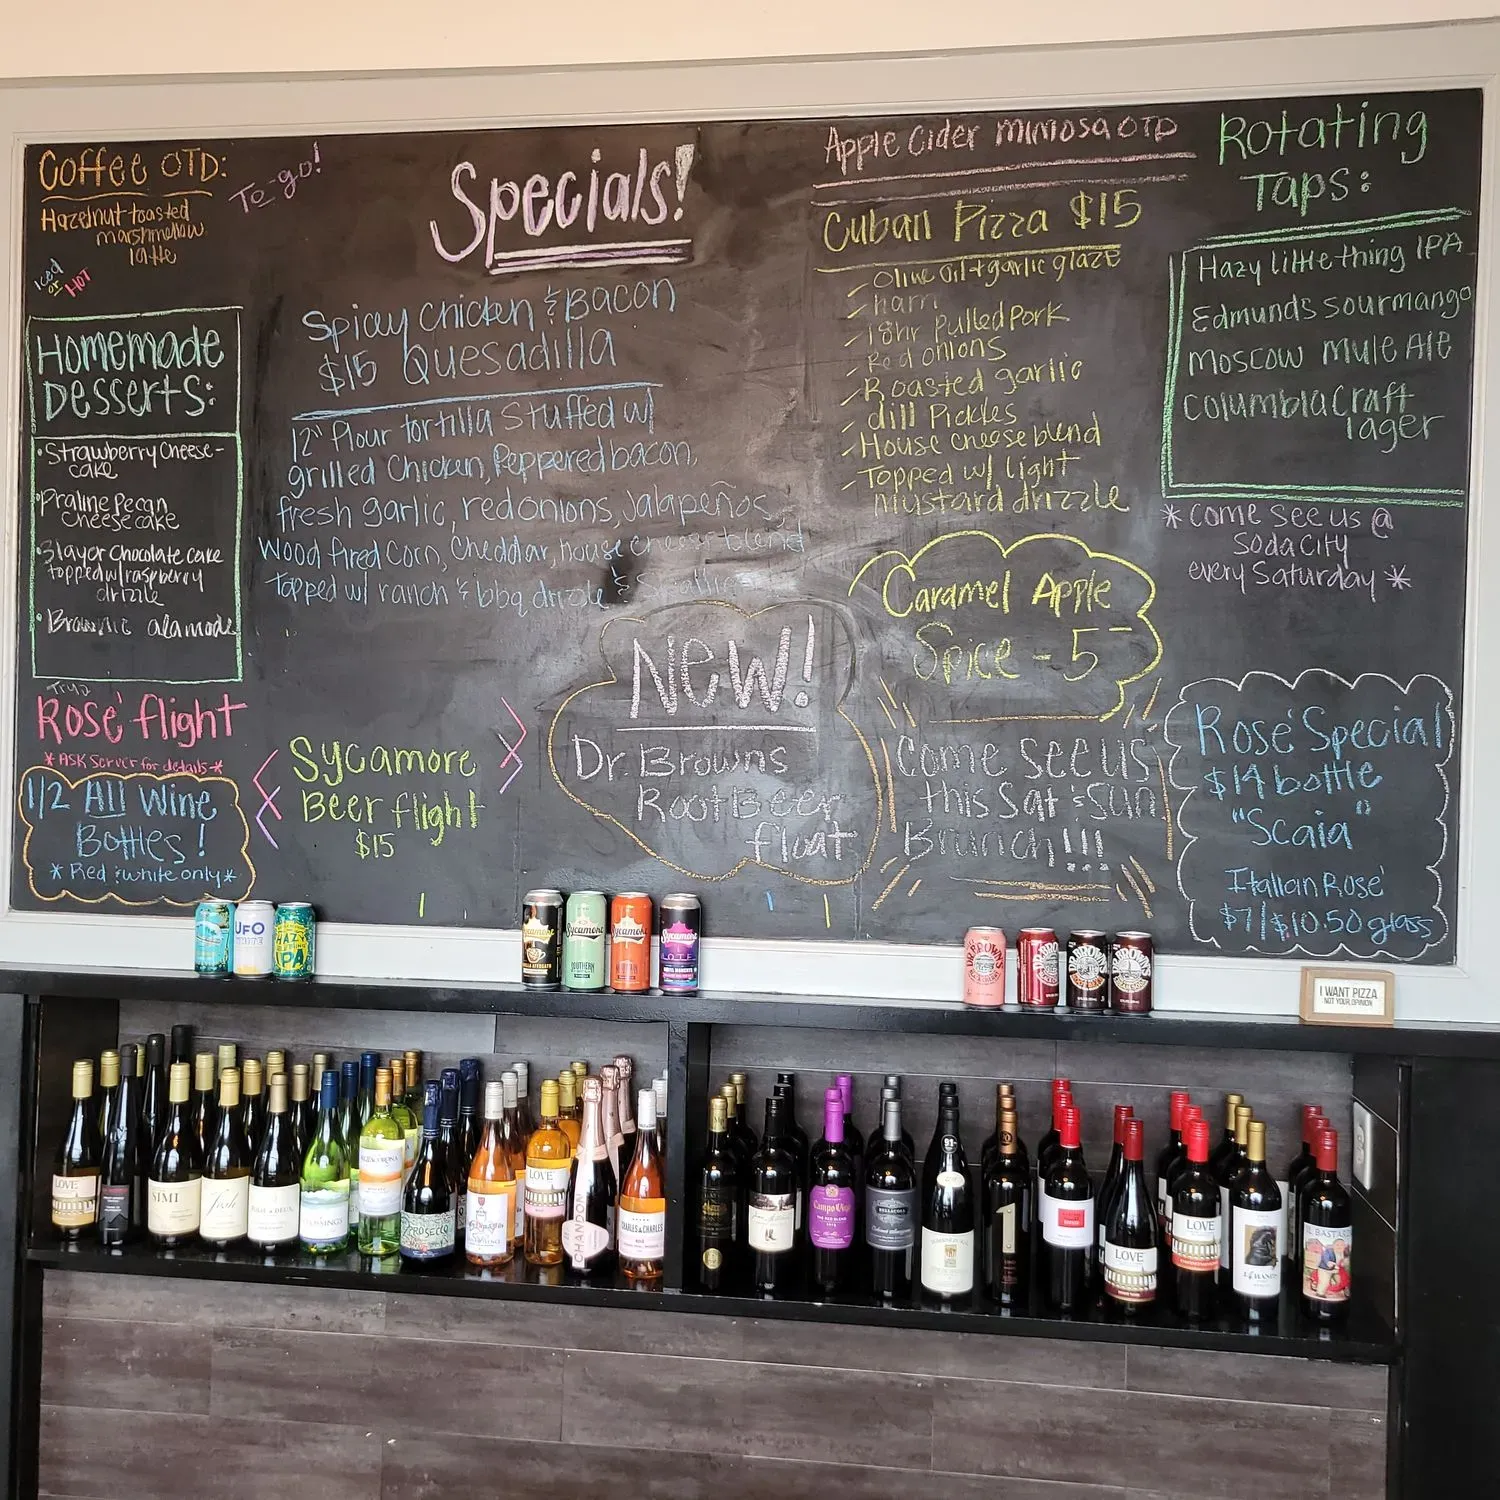 Coffee OTD:
To-go!
Hazelnut toasted
marshmallow
latte
Iced
or
HOT
Homemade
Desserts:
• Strawberry cheese-
cake
• Praline Pecan
cheesecake
• 3 layor chocolate cake
topped w/ raspberry
drizzle
• Brownie alamode
Try a
Rosé flight
*ASK Server for details*
1/2 All Wine
Bottles!
* Red & white only *
Specials!
Spicy Chicken & Bacon
$15 Quesadilla
12" Flour tortilla Stuffed w/
grilled Chicken, Peppered bacon,
fresh garlic, red onions, Jalapeños,
Wood fired Corn, Cheddar, house cheese blend
topped w/ ranch & bbq drizzle &
Sycamore
Beer flight
$15
New!
Dr. Browns
Root Beer
float
Apple Cider Mimosa OTD
Cuban Pizza $15
- Olive Oil + garlic glaze
- ham
- 18hr Pulled Pork
- Red onions
- Roasted garlic
- dill Pickles
- House cheese blend
- Topped w/ light
mustard drizzle
Caramel Apple
Spice - 5
Come see us
this Sat & Sun
Brunch!!!
Rotating
Taps:
Hazy little thing IPA
Edmunds sour mango
Moscow Mule Ale
Columbia Craft
lager
* Come see us @
Soda City
every Saturday *
Rosé Special
$14 bottle
"Scaia"
Italian Rosé
$7 | $10.50 glass
UFO
WHITE
HAZY
IPA
Sycamore
Sycamore
SOUTHERN
Sycamore
Sycamore
DR. BROWN'S
DR. BROWN'S
DR. BROWN'S
DR. BROWN'S
I WANT PIZZA
NOT YOUR OPINION
LOVE
SIMI
Josh
PROSECCO
LOVE
CHANDON
CHARLES & CHARLES
Campo Viejo
91
1
LOVE
LOVE
14 HANDS
IL BASTARDO